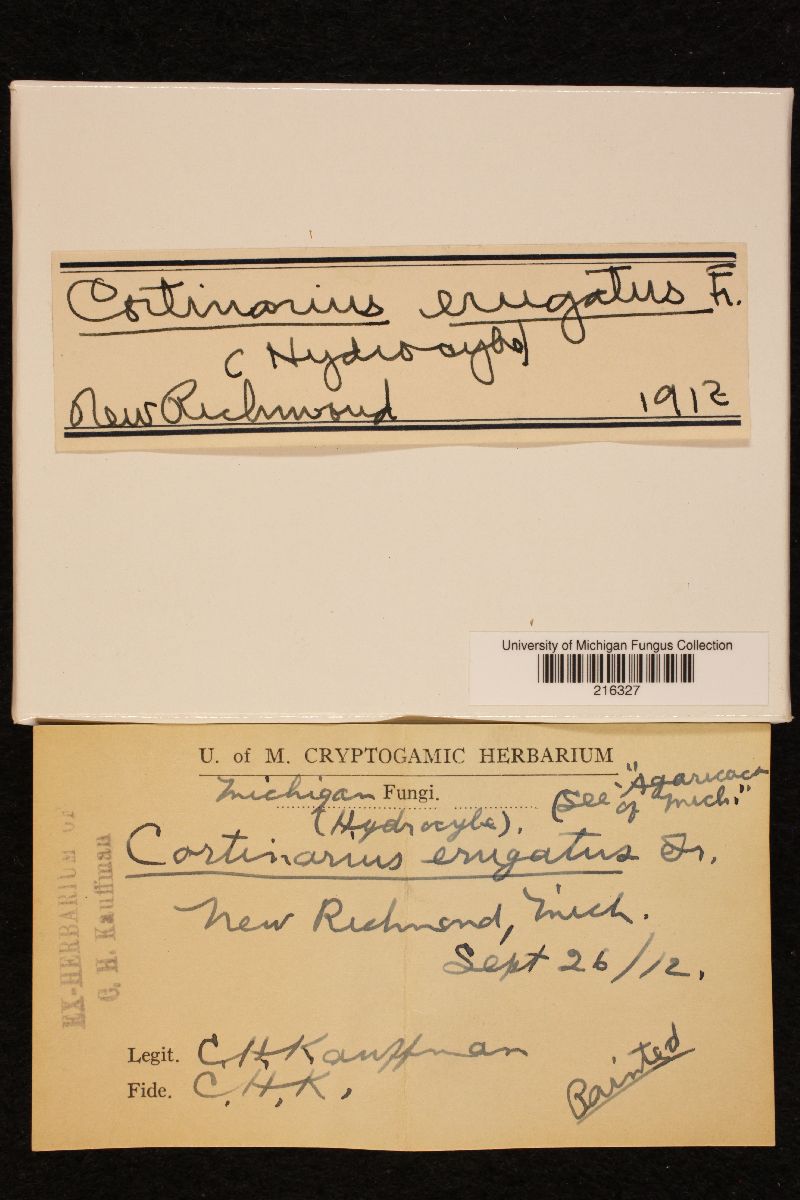 Cortinarius erugatus Fr.
(Hydrocybe)
New Richmond 1912
University of Michigan Fungus Collection
216327
U. of M. CRYPTOGAMIC HERBARIUM
Michigan Fungi.
(See "Agaricac
of Mich."
(Hydrocybe).
Cortinarius erugatus Fr.
New Richmond, Mich.
Sept 26/12.
EX-HERBARIUM OF
C. H. Kauffman
Legit. C.H.Kauffman
Fide. C.H.K.
Painted